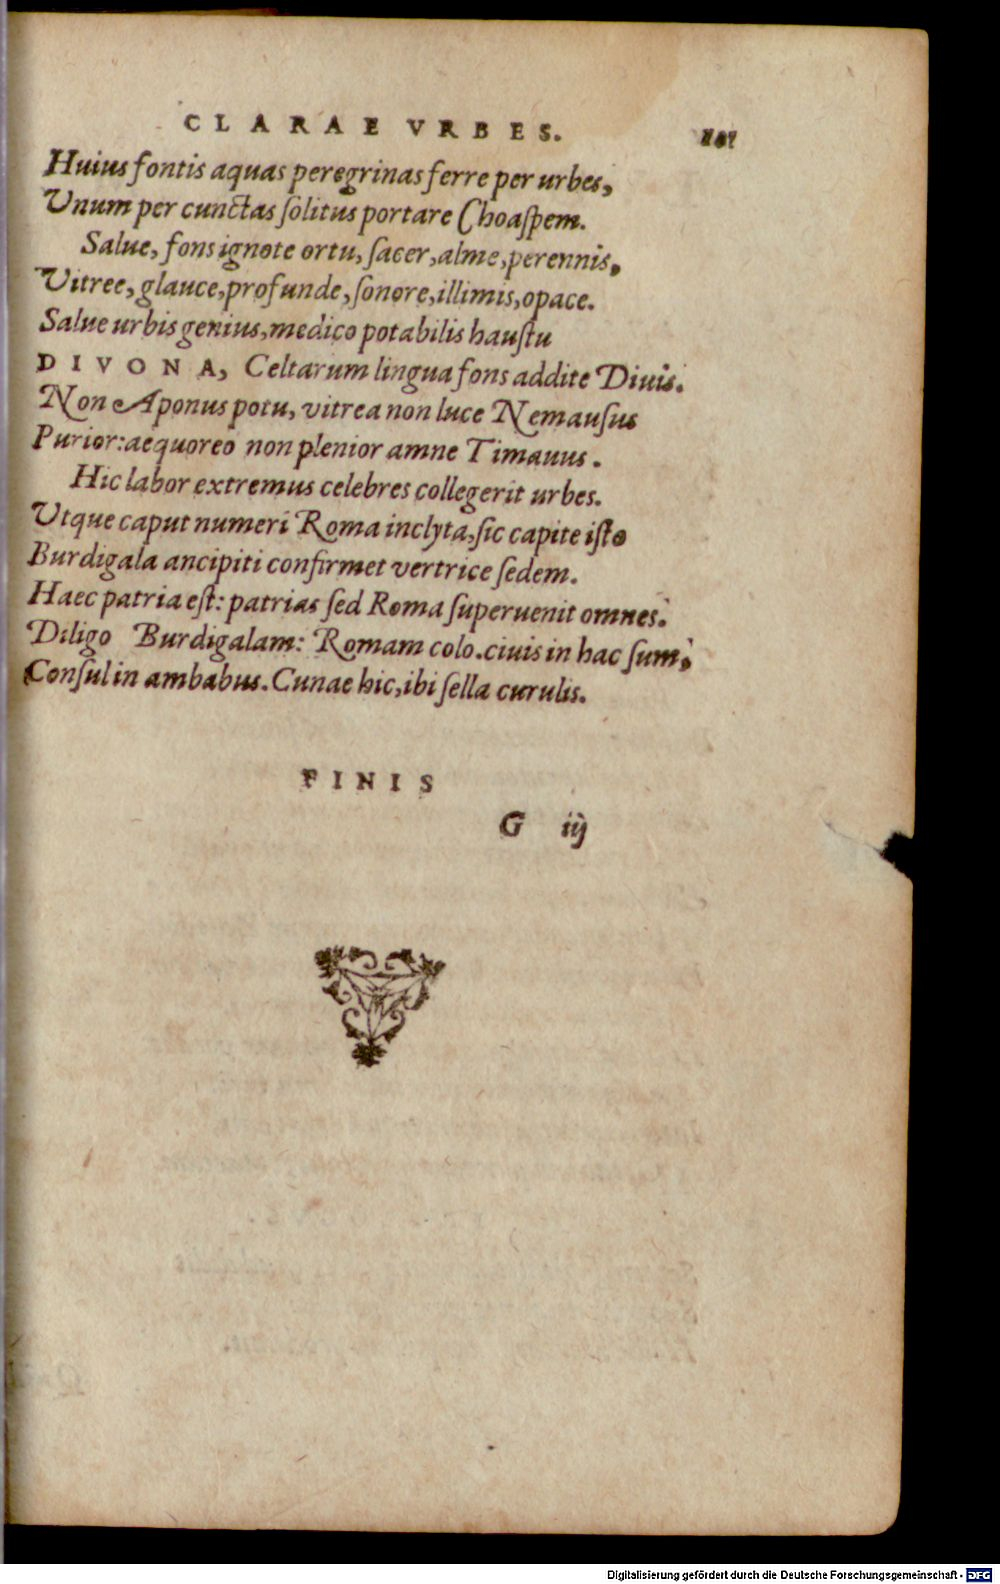 CLARAE VRBES. 101
Huius fontis aquas peregrinas ferre per urbes,
Unum per cunctas ſolitus portare Choaſpem.
Salue, fons ignote ortu, ſacer, alme, perennis,
Vitree, glauce, profunde, ſonore, illimis, opace.
Salue urbis genius, medico potabilis hauſtu
DIVONA, Celtarum lingua fons addite Diuis.
Non Aponus potu, vitrea non luce Nemauſus
Purior: aequoreo non plenior amne Timauus.
Hic labor extremus celebres collegerit urbes.
Utque caput numeri Roma inclyta, ſic capite iſto
Burdigala ancipiti confirmet vertrice ſedem.
Haec patria eſt: patrias ſed Roma ſuperuenit omnes.
Diligo Burdigalam: Romam colo. ciuis in hac ſum,
Conſul in ambabus. Cunae hic, ibi ſella curulis.
FINIS
G iij
Digitalisierung gefördert durch die Deutsche Forschungsgemeinschaft - DFG